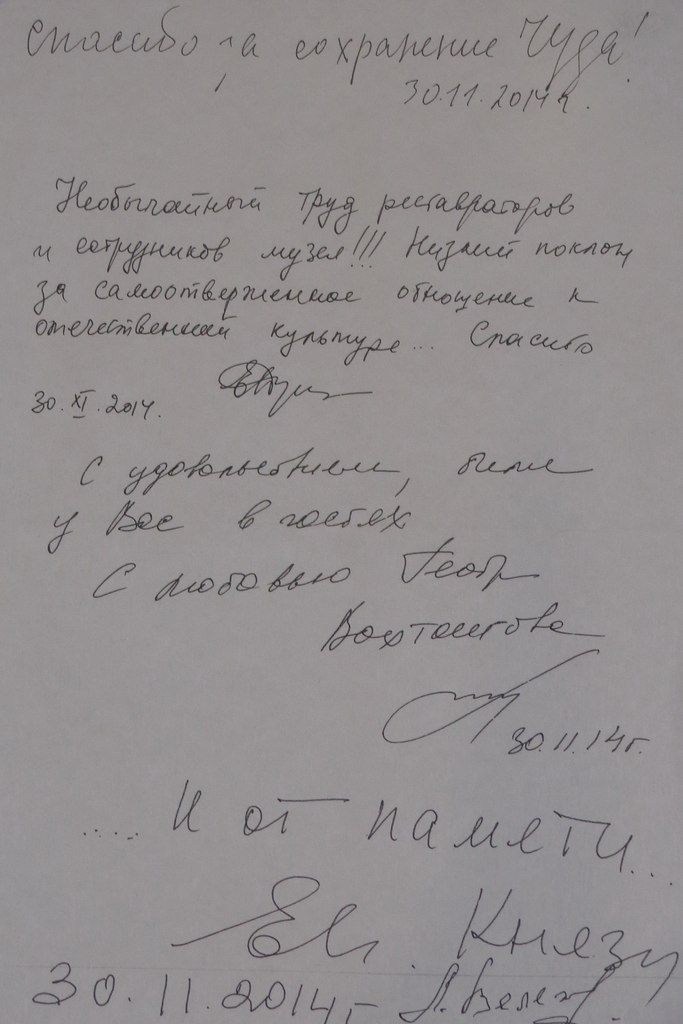 Спасибо за сохранение Чуда!
30.11.2014г.
Необычайный труд реставраторов
и сотрудников музея!!! Низкий поклон
за самоотверженное отношение к
отечественной культуре... Спасибо
30.XI.2014.
С удовольствием, были
у Вас в гостях
С любовью Театр
Вахтангова
30.11.14г.
..... И от памяти...
Ев. Князе
30.11.2014г